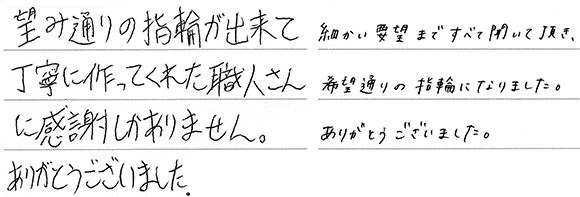 望み通りの指輪が出来て
丁寧に作ってくれた職人さん
に感謝しかありません。
ありがとうございました.
細かい要望まですべて聞いて頂き、
希望通りの指輪になりました。
ありがとうございました。